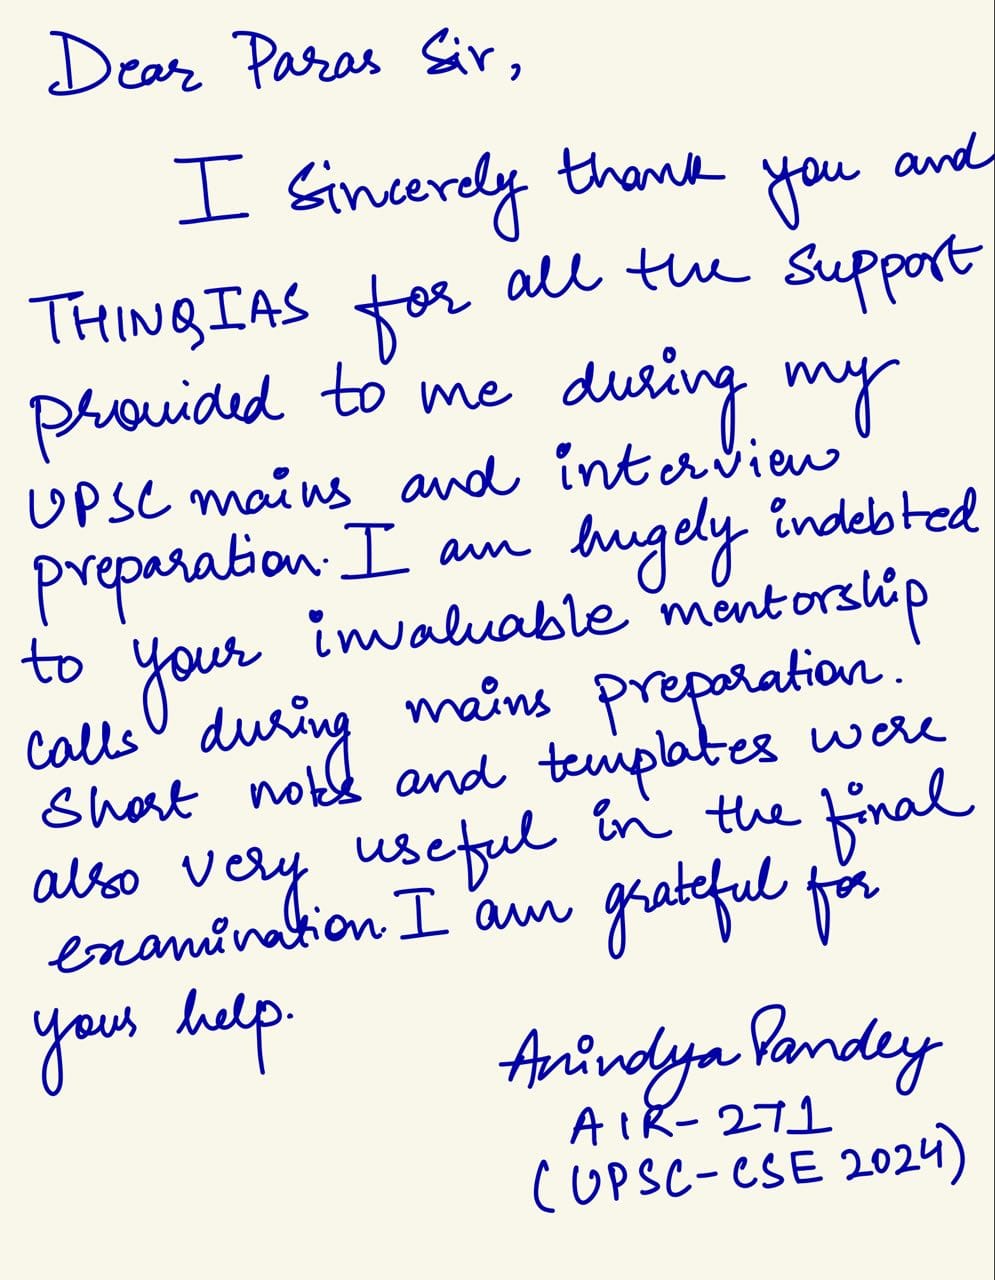 Dear Paras Sir,
I sincerely thank you and
THINQIAS for all the support
provided to me during my
UPSC mains and interview
preparation. I am hugely indebted
to your invaluable mentorship
calls during mains preparation.
Short notes and templates were
also very useful in the final
examination. I am grateful for
your help.
Anindya Pandey
AIR-271
(UPSC-CSE 2024)